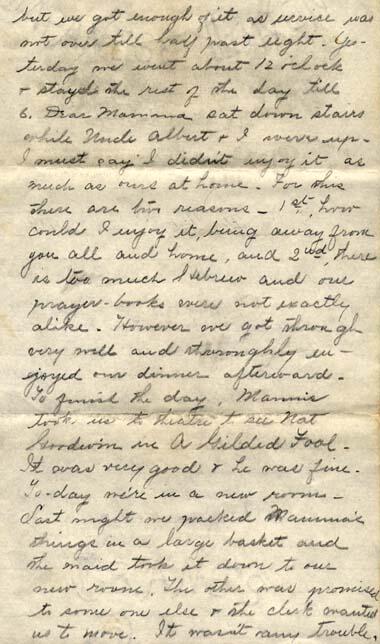 but we got enough of it as service was
not over till half past eight. Yes-
terday we went about 12 o'clock
& stayed the rest of the day till
6. Dear Mamma sat down stairs
while Uncle Albert & I were up-
I must say I didn't enjoy it as
much as ours at home. For this
there are two reasons - 1st, how
could I enjoy it, being away from
you all and home, and 2nd, there
is too much Hebrew and our
prayer-books were not exactly
alike. However we got through
very well and thoroughly en-
joyed our dinner afterward.
To finish the day, Mannie
took us to theatre to see Nat
Goodwin in A Gilded Fool.
It was very good & he was fine.
To-day we're in a new room -
Last night we packed Mamma's
things in a large basket and
the maid took it down to our
new room. The other was promised
to some one else & the clerk wanted
us to move. It wasn't any trouble,